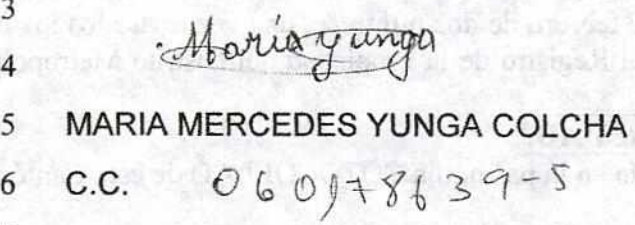 3
4 Maria yunga
5 MARIA MERCEDES YUNGA COLCHA
6 C.C. 060178639-5